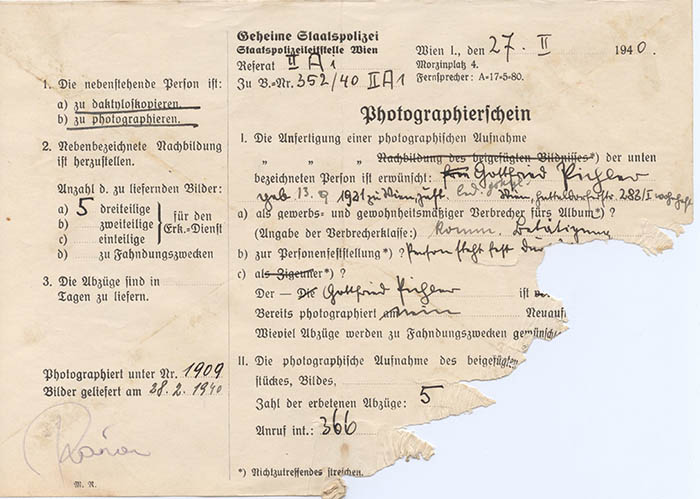 Geheime Staatspolizei
Staatspolizeileitstelle Wien
Referat II A 1
Zu B.-Nr. 352/40 II A 1
Wien I., den 27. II 1940.
Morzinplatz 4.
Fernsprecher: A=17=5=80.
1. Die nebenstehende Person ist:
a) zu daktyloskopieren.
b) zu photographieren.
2. Nebenbezeichnete Nachbildung
ist herzustellen.
Anzahl d. zu liefernden Bilder:
a) 5 dreiteilige
b) zweiteilige
c) einteilige
für den
Erk.=Dienst
d) zu Fahndungszwecken
3. Die Abzüge sind in
Tagen zu liefern.
Photographiert unter Nr. 1909
Bilder geliefert am 28. 2. 1940
M. R.
Photographierschein
I. Die Anfertigung einer photographischen Aufnahme
" " Nachbildung des beigefügten Bildnisses*) der unten
bezeichneten Person ist erwünscht: Gottfried Pichler
geb. 13. 9 1921 zu Wien, led. Wien,
a) als gewerbs= und gewohnheitsmäßiger Verbrecher fürs Album*) ?
(Angabe der Verbrecherklasse:) komm. Betätigung
b) zur Personenfeststellung*) ? Person steht fest
c) als Zigeuner*) ?
Der — Die Gottfried Pichler ist
Bereits photographiert nein Neuauf
Wieviel Abzüge werden zu Fahndungszwecken gewünsch
II. Die photographische Aufnahme des beigefügten
stückes, Bildes,
Zahl der erbetenen Abzüge: 5
Anruf int.: 366
*) Nichtzutreffendes streichen.